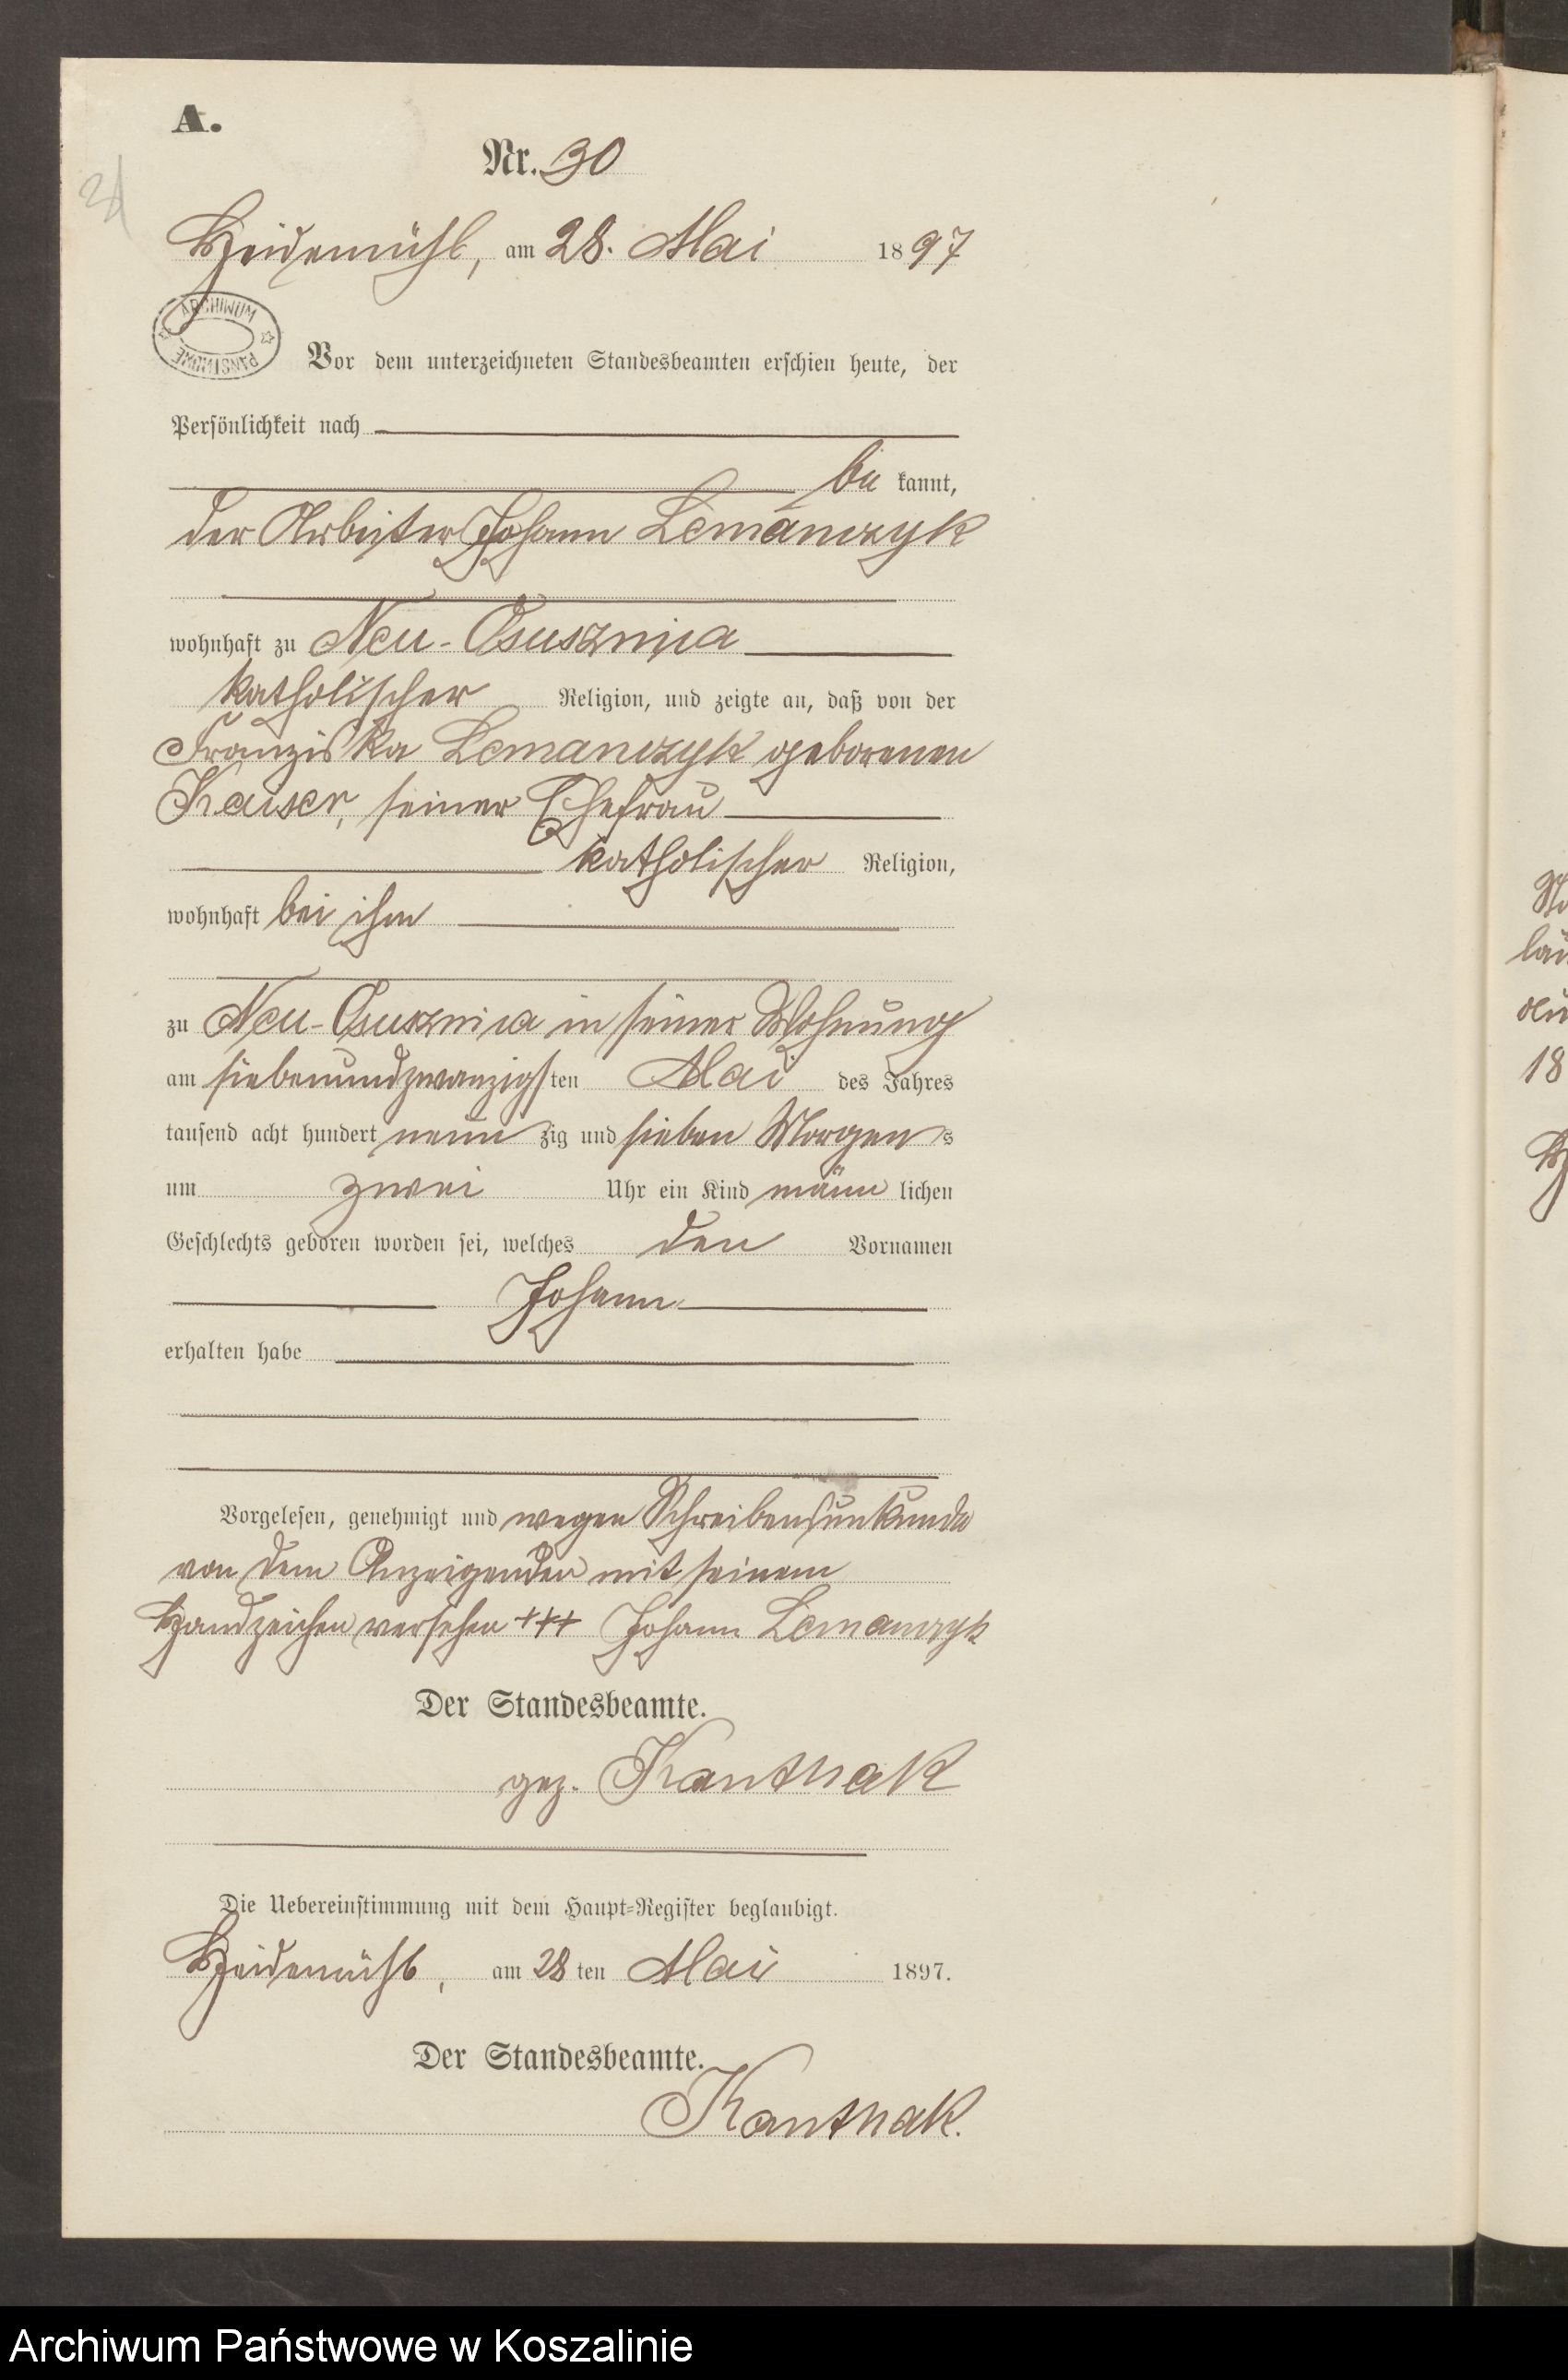 A.
Nr. 30
Heidemühl, am 28. Mai 1897
ARCHIWUM PAŃSTWOWE
Vor dem unterzeichneten Standesbeamten erschien heute, der
Persönlichkeit nach
be kannt,
der Arbeiter Johann Lemanczyk
wohnhaft zu Neu-Osusznica
katholischer Religion, und zeigte an, daß von der
Franziska Lemanczyk geborenen
Kaiser, seiner Ehefrau
katholischer Religion,
wohnhaft bei ihm
zu Neu-Osusznica in seiner Wohnung
am siebenundzwanzigsten Mai des Jahres
tausend acht hundert neun zig und sieben Morgens
um zwei Uhr ein Kind männ lichen
Geschlechts geboren worden sei, welches den Vornamen
Johann
erhalten habe
Vorgelesen, genehmigt und wegen Schreibensunkunde
von dem Anzeigenden mit seinem
Handzeichen versehen +++ Johann Lemanczyk
Der Standesbeamte.
gez. Kanthak
Die Uebereinstimmung mit dem Haupt-Register beglaubigt.
Heidemühl, am 28 ten Mai 1897.
Der Standesbeamte.
Kanthak.
18
Archiwum Państwowe w Koszalinie